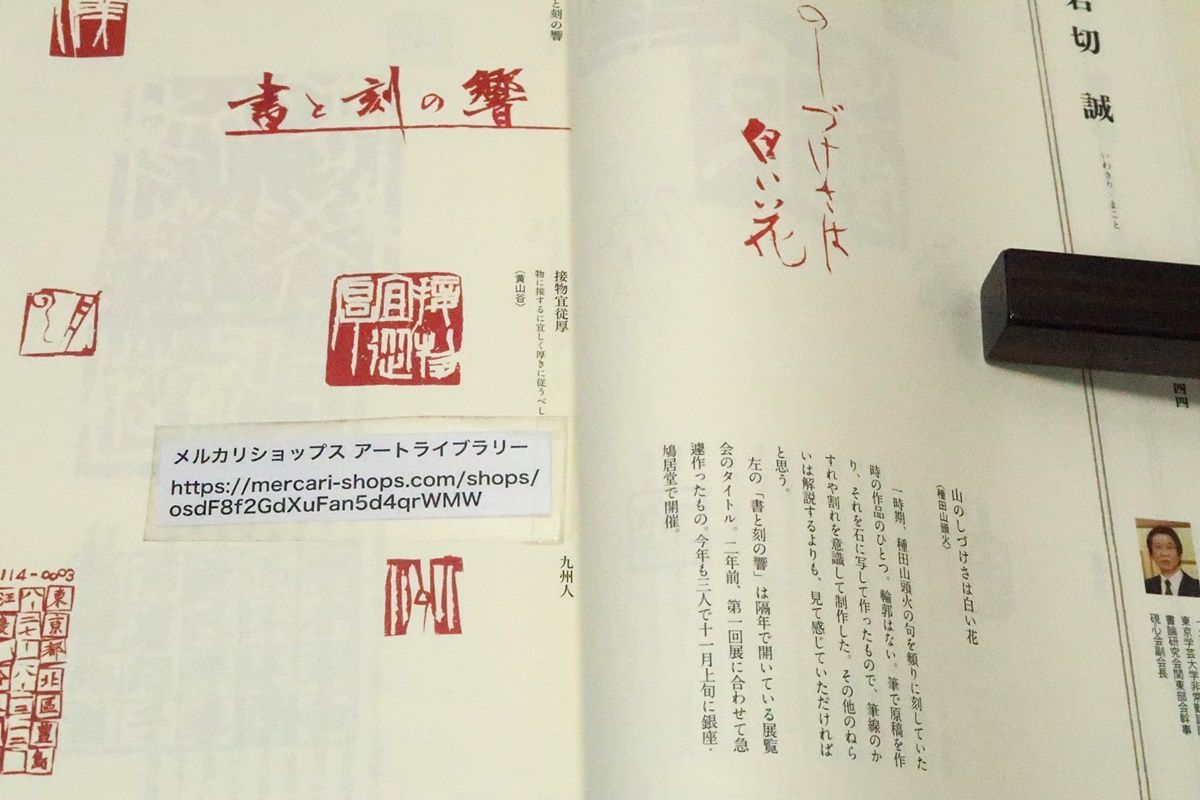 石切 誠
いわきり・まこと
四四
東京学芸大学非常勤講
書論研究会関東部会幹事
硯心会副会長
のしづけさは
白い花
山のしづけさは白い花
〈種田山頭火〉
一時期、種田山頭火の句を頻りに刻していた
時の作品のひとつ。輪郭はない。筆で原稿を作
り、それを石に写して作ったもので、筆線のか
すれや割れを意識して制作した。その他のねら
いは解説するよりも、見て感じていただければ
と思う。
左の「書と刻の響」は隔年で開いている展覧
会のタイトル。二年前、第一回展に合わせて急
遽作ったもの。今年も三人で十一月上旬に銀座・
鳩居堂で開催。
と刻の響
書と刻の響
接物宜従厚
物に接するに宜しく厚きに従うべし
〈黄山谷〉
接物
宜従
厚
メルカリショップス アートライブラリー
https://mercari-shops.com/shops/
osdF8f2GdXuFan5d4qrWMW
九州人
114-0003
東京都北區豊島
八-二七-一八-三一三